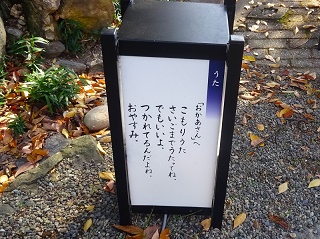 うた
「おかあさん」へ
こもりうた
さいこまでうたってね。
でもいいよ、
つかれてるんだよね。
おやすみ。